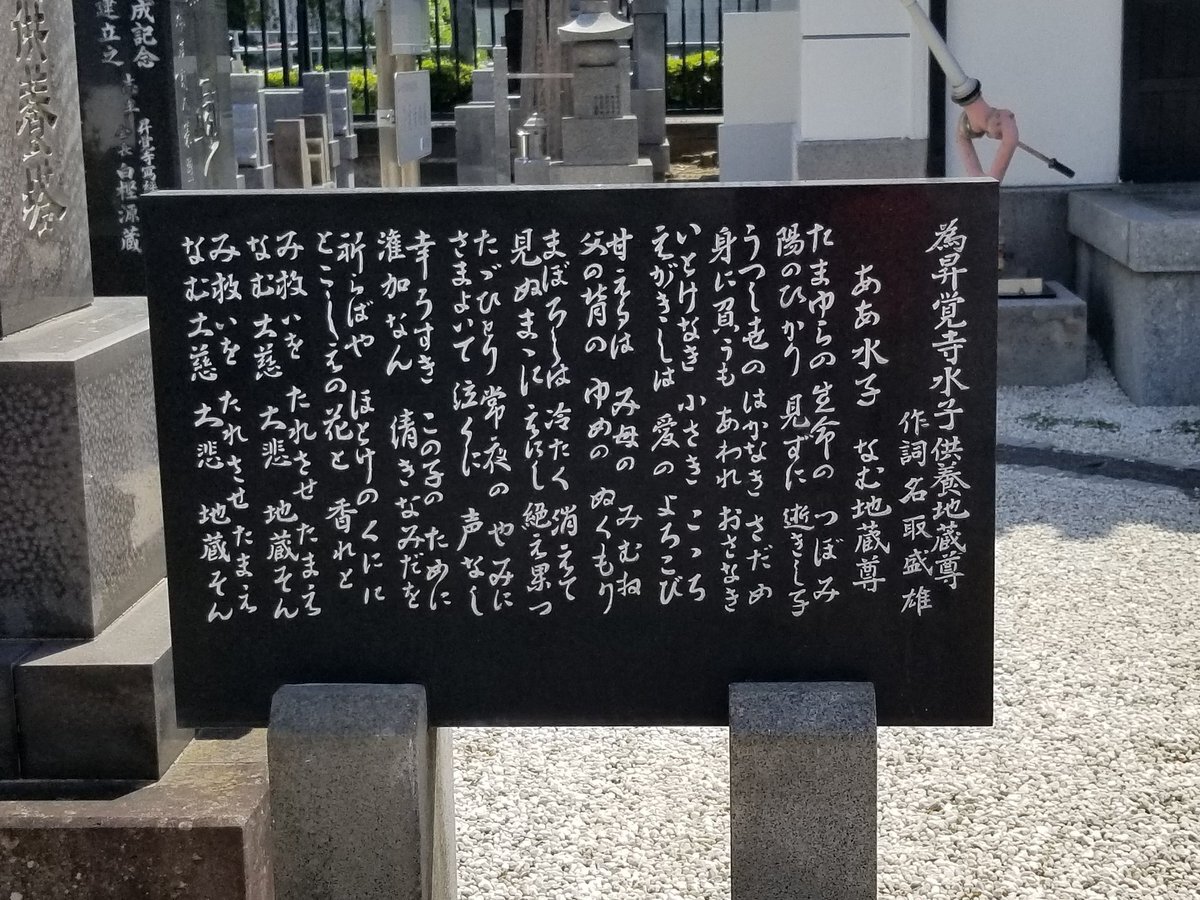 為昇覚寺水子供養地蔵尊
作詞名取盛雄
ああ水子 なむ地蔵尊
たまゆらの 生命の つぼみ
陽のひかり 見ずに 逝きし子
うつし世の はかなき さだめ
身に負うも あわれ おさなき
いとけなき 小さき こゝち
えがきしは 愛の よろこび
甘えるは み母の みむね
父の背の ゆめの ぬくもり
まぼろしは 冷たく 消えて
見ぬまゝに えにし 絶え果つ
たゞひとり 常夜の やみに
さまよいて 泣くに 声なし
幸うすき この子の ために
潅加なん 清きなみだを
祈らばや ほとけのくにに
とこしえの花と 香れと
み救いを たれさせ たまえ
なむ大慈 大悲 地蔵そん
み救いを たれさせたまえ
なむ大慈 大悲 地蔵そん
供養塔
成記念
建立之
昇覚寺
白樫源蔵